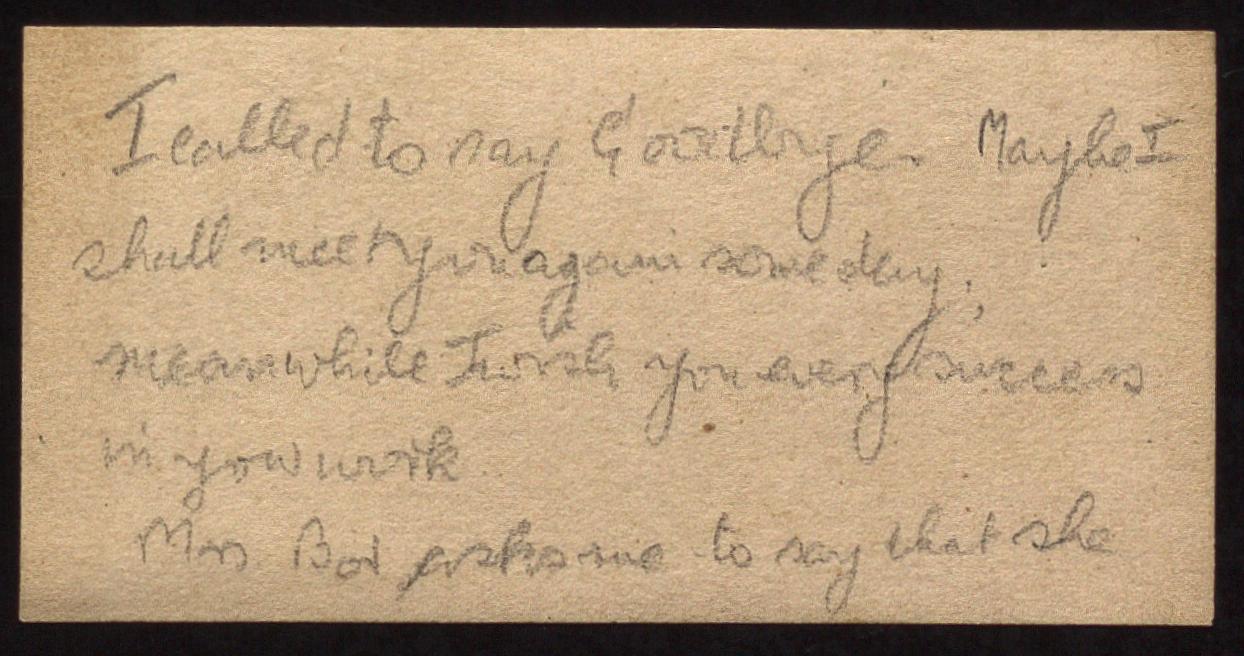 I called to say Goodbye. Maybe I
shall meet you again some day;
meanwhile I wish you every success
in your work
Mrs asks me to say that she